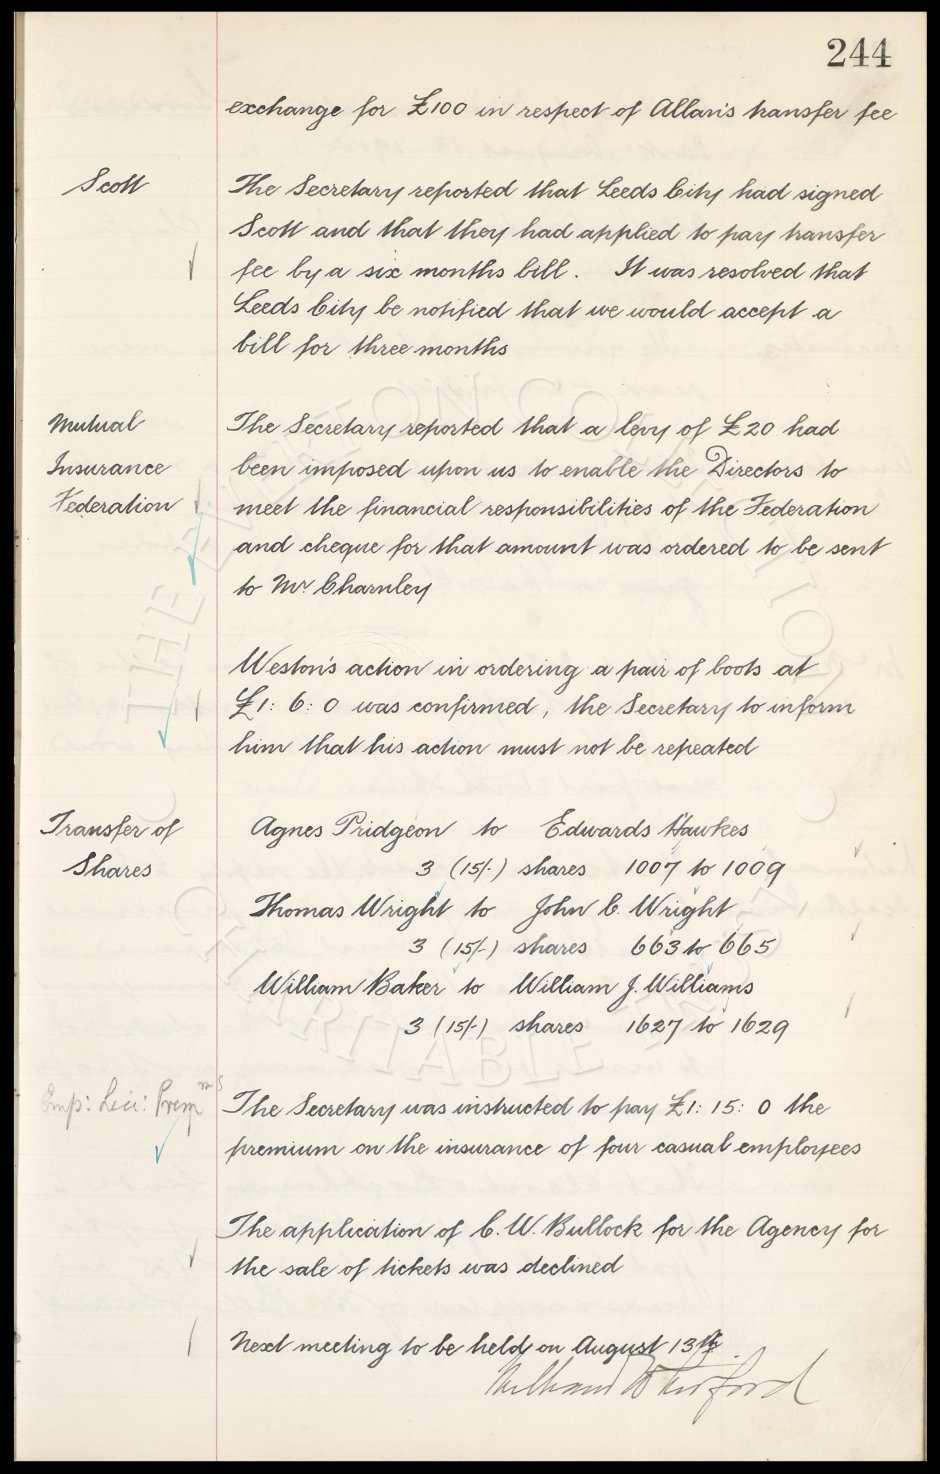 244
exchange for £100 in respect of Allan's transfer fee
Scott
The Secretary reported that Leeds City had signed
Scott and that they had applied to pay transfer
fee by a six months bill. It was resolved that
Leeds City be notified that we would accept a
bill for three months
Mutual
Insurance
Federation
The Secretary reported that a levy of £20 had
been imposed upon us to enable the Directors to
meet the financial responsibilities of the Federation
and cheque for that amount was ordered to be sent
to Mr Charnley
Weston's action in ordering a pair of boots at
£1: 6: 0 was confirmed, the Secretary to inform
him that his action must not be repeated
Transfer of
Shares
Agnes Pridgeon to Edwards Hawkes
3 (15/-) shares 1007 to 1009
Thomas Wright to John C. Wright
3 (15/-) shares 663 to 665
William Baker to William J. Williams
3 (15/-) shares 1627 to 1629
Emp: Prem
The Secretary was instructed to pay £1: 15: 0 the
premium on the insurance of four casual employees
The application of C. W. Bullock for the Agency for
the sale of tickets was declined
Next meeting to be held on August 13th.
William
THE EVERTON COLLECTION
CHARITABLE